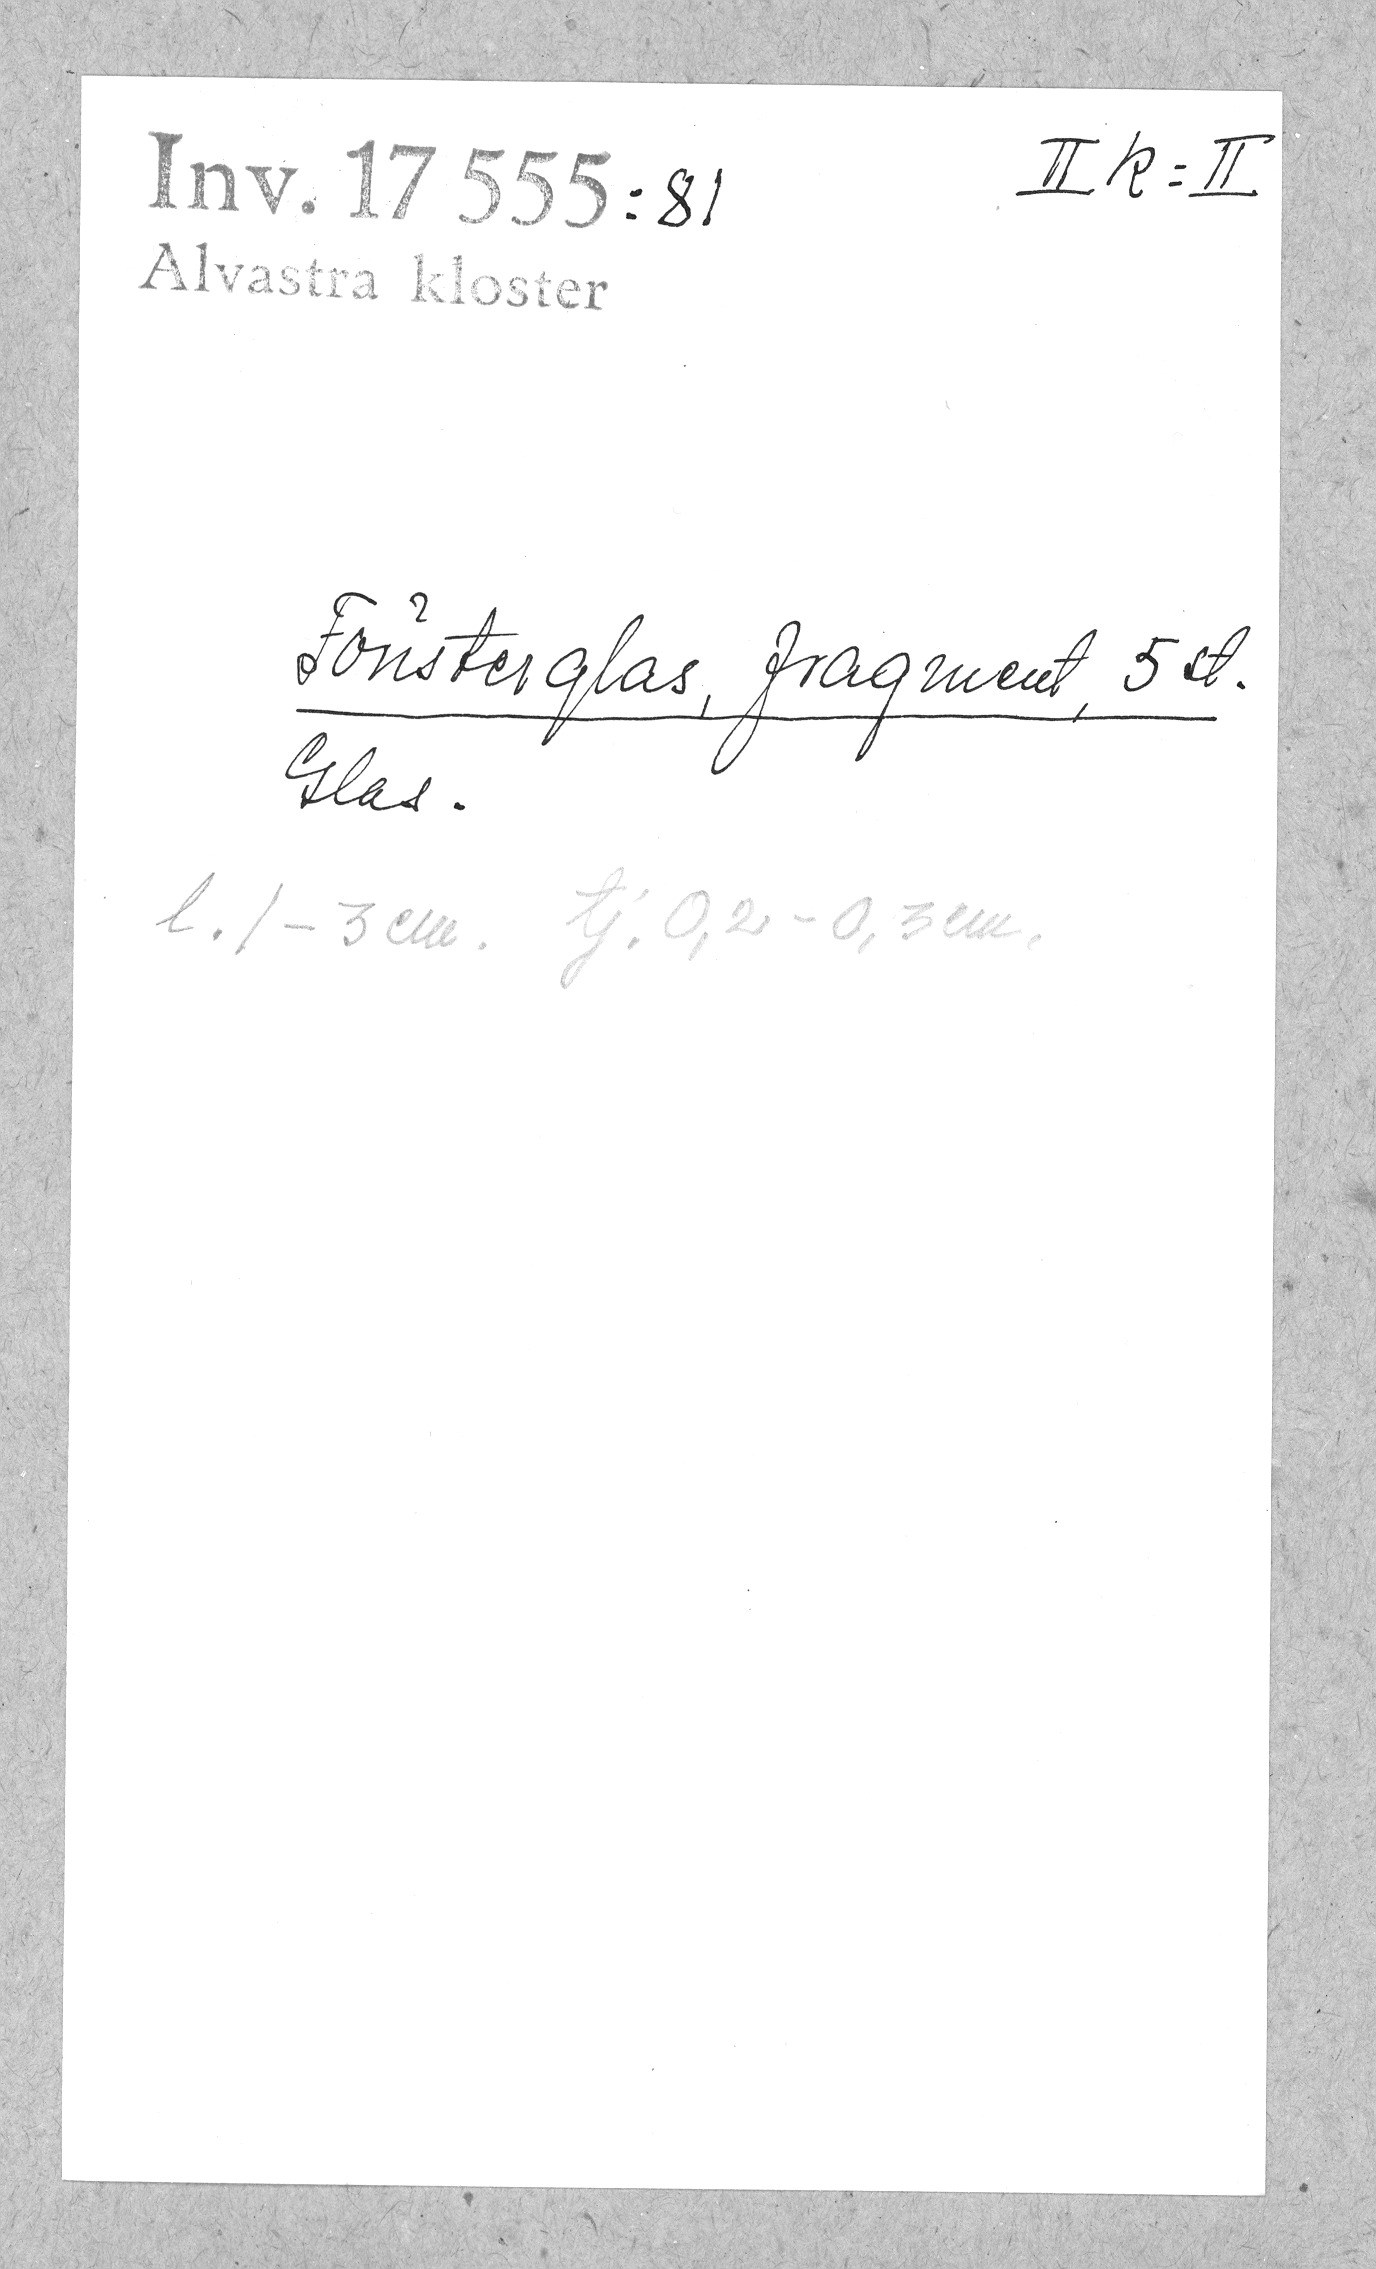 Inv. 17 555:81
II k:II
Alvastra kloster
Fönsterglas, fragment, 5 st.
Glas.
l. 1-3 cm. tj. 0,2-0,3 cm.